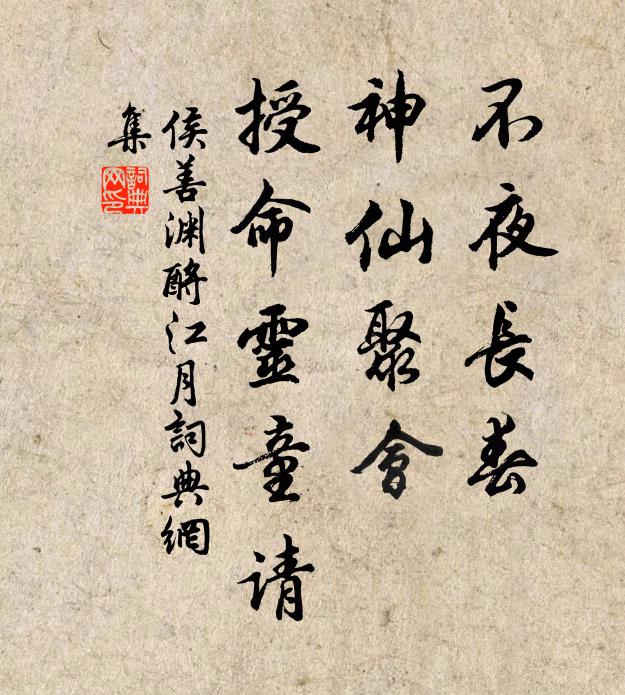 不夜長春
神仙聚會
授命靈童请
侯善渊酹江月詞典網
集
詞典
网印